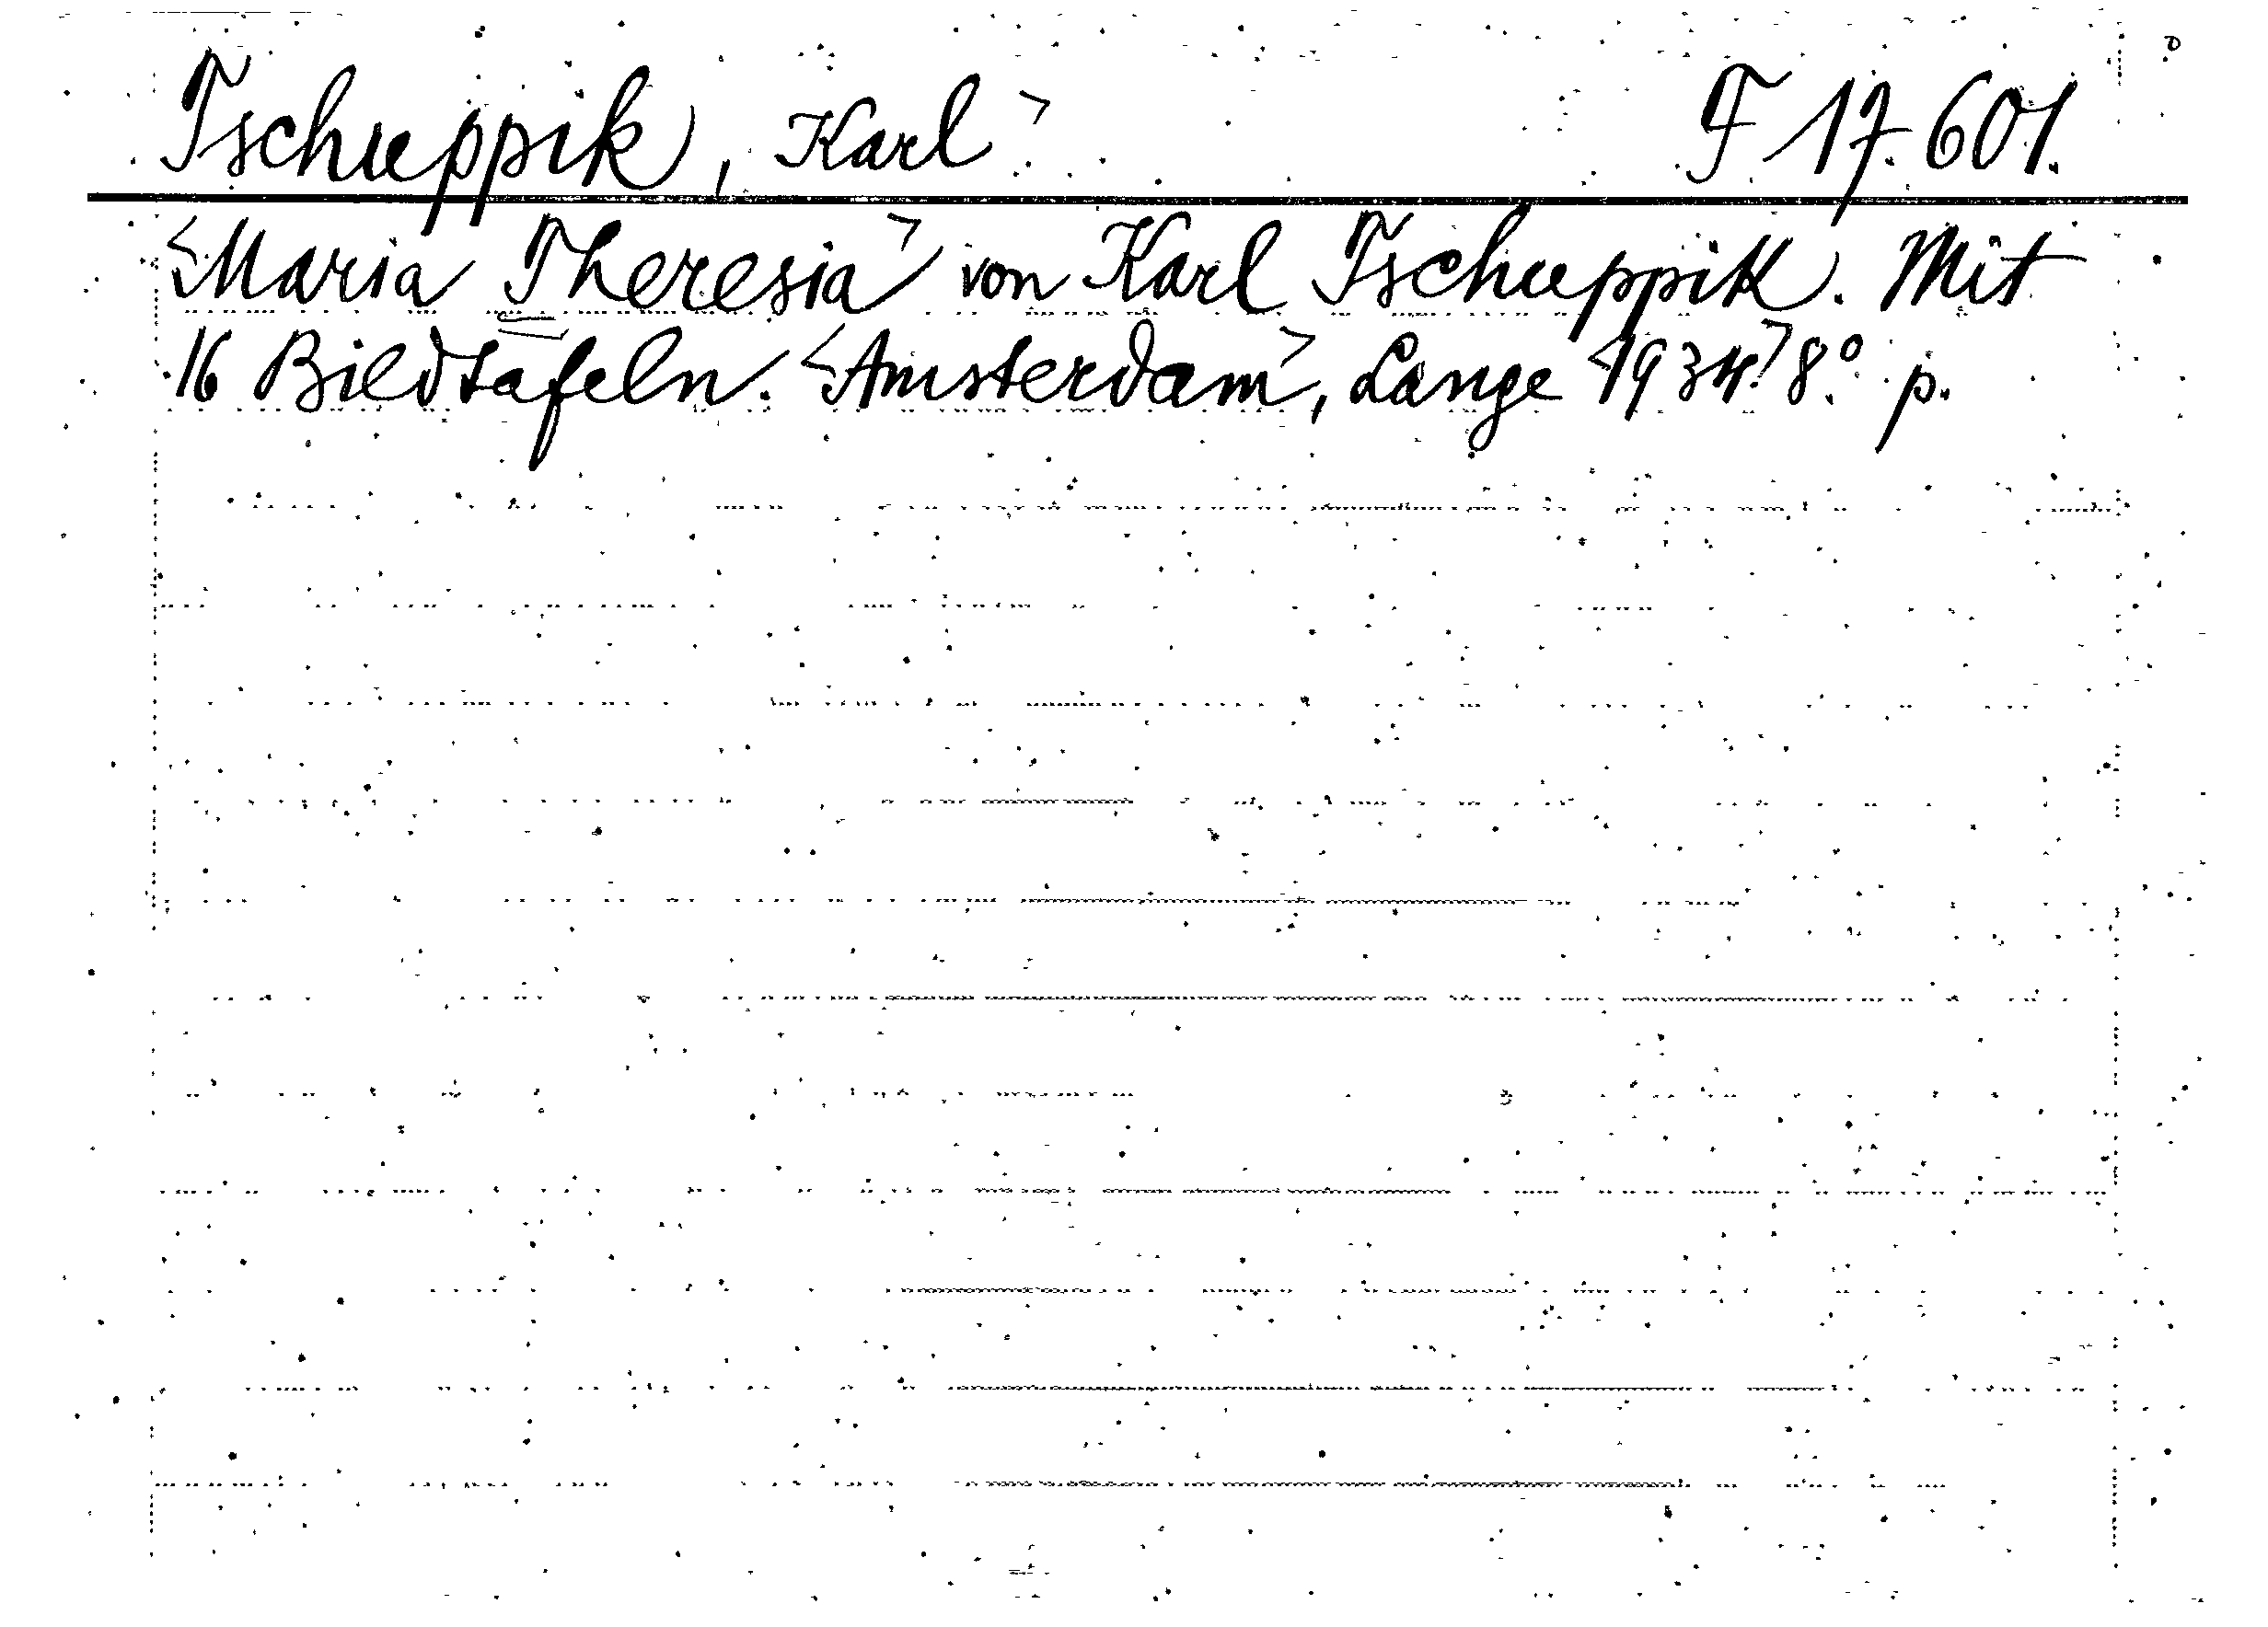 Tschuppik, Karl> F 17.601.
<Maria Theresia> von Karl Tschuppik. Mit
16 Bildtafeln. <Amsterdam>, Lange <1934.> 8.° p.